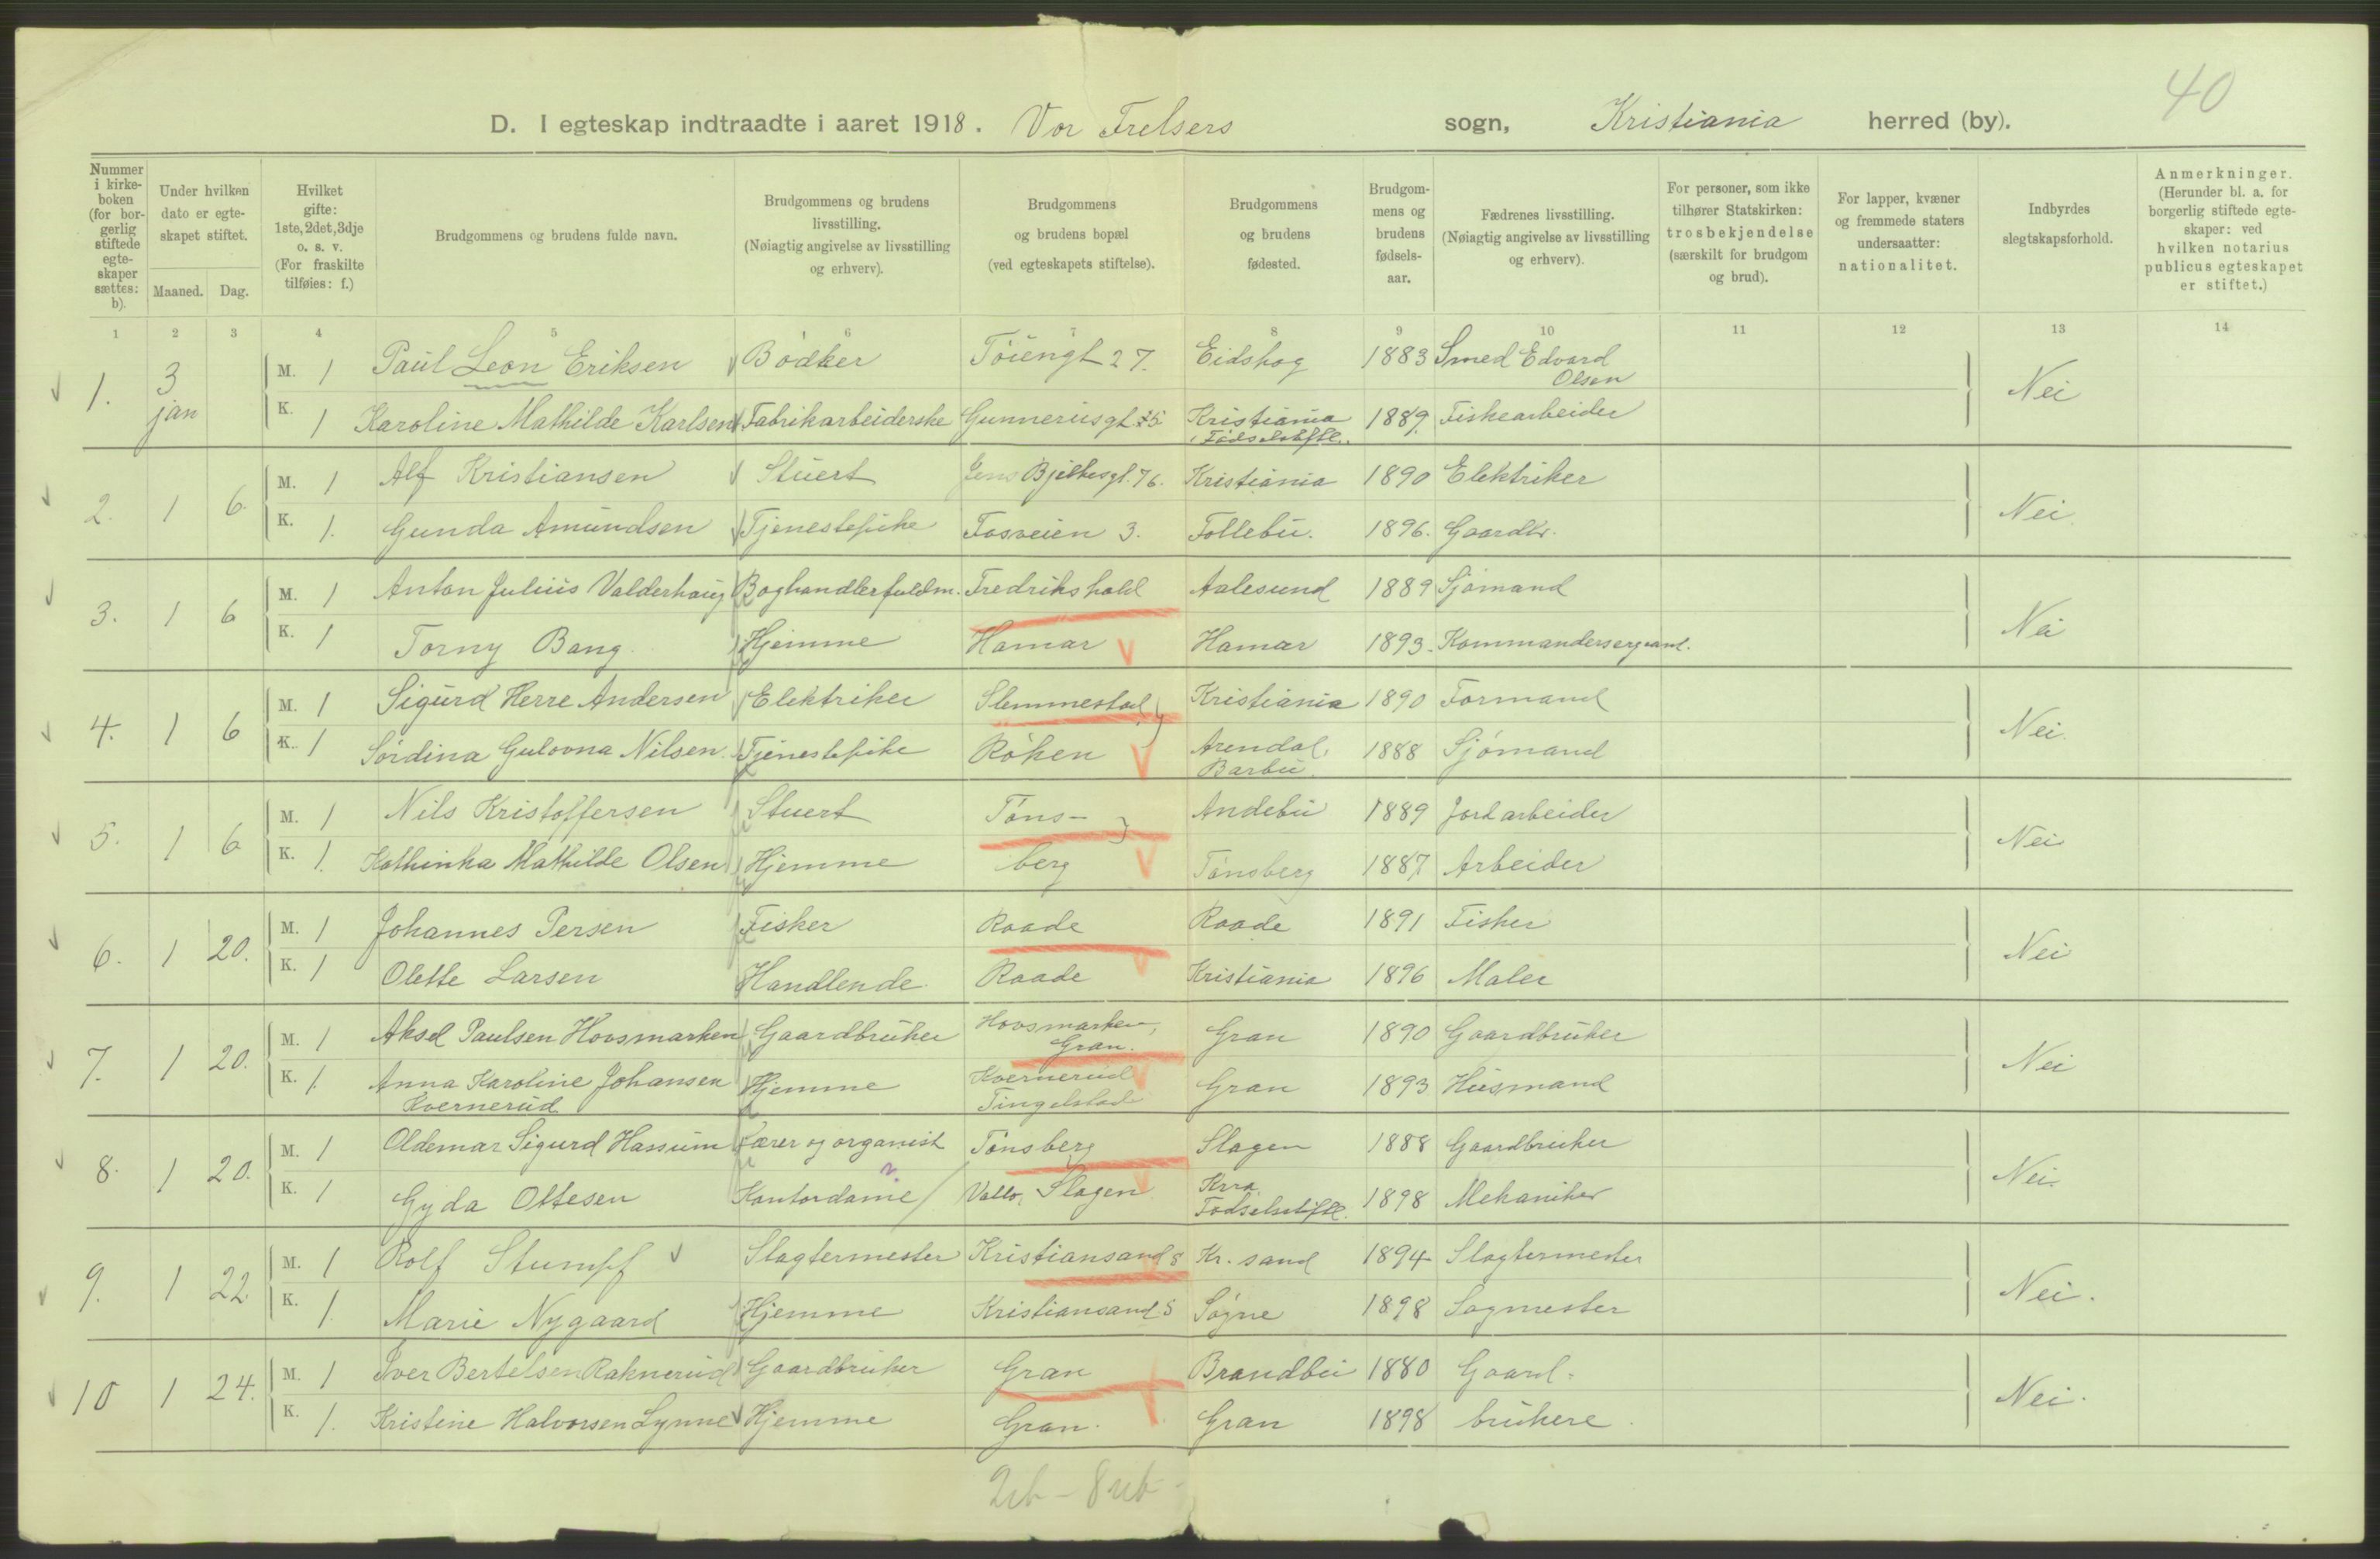 40
D. I egteskap indtraadte i aaret 1918. Vor Frelsers sogn, Kristiania herred (by).
Nummer i kirkeboken (for borgerlig stiftede egteskaper sættes: b).
Under hvilken dato er egteskapet stiftet.
Maaned. Dag.
Hvilket gifte: 1ste, 2det, 3dje o. s. v. (For fraskilte tilføies: f.)
Brudgommens og brudens fulde navn.
Brudgommens og brudens livsstilling. (Nøiagtig angivelse av livsstilling og erhverv).
Brudgommens og brudens bopæl (ved egteskapets stiftelse).
Brudgommens og brudens fødested.
Brudgommens og brudens fødselsaar.
Fædrenes livsstilling. (Nøiagtig angivelse av livsstilling og erhverv).
For personer, som ikke tilhører Statskirken: trosbekjendelse (særskilt for brudgom og brud).
For lapper, kvæner og fremmede staters undersaatter: nationalitet.
Indbyrdes slegtskapsforhold.
Anmerkninger. (Herunder bl. a. for borgerlig stiftede egteskaper: ved hvilken notarius publicus egteskapet er stiftet.)
1 2 3 4 5 6 7 8 9 10 11 12 13 14
1. 3 jan M. 1 Paul Leon Eriksen Bødker Töiengt 27. Eidskog 1883 Smed Edvard Olsen Nei
K. 1 Karoline Mathilde Karlsen Fabrikarbeiderske Gunnerusgt Kristiania Fødselsstift. 1889. Fiskearbeider
2. 1 6. M. 1 Alf Kristiansen Stuert Jens Bjelkesgt. 76. Kristiania 1890 Elektriker Nei.
K. 1. Gunda Amundsen Tjenestepike Fosveien 3. Follebu. 1896. Gaardbr.
3. 1 6 M. 1 Anton Julius Valderhaug Boghandlerfuldm. Fredrikshald Aalesund 1889 Sjømand Nei
K. 1 Torny Bang. Hjemme Hamar Hamar 1893. Kommandersergeant.
4. 1 6 M. 1 Sigurd Herre Andersen Elektriker Slemmestad Kristiania 1890 Formand Nei.
K. 1 Sördina Gulovna Nilsen Tjenestepike Röken Arendal, Barbu. 1888 Sjömand
5. 1 6 M. 1 Nils Kristoffersen Stuert Töns- Andebu 1889 Jordarbeider Nei
K. 1. Kathinka Mathilde Olsen Hjemme berg Tönsberg 1887 Arbeider
6. 1 20. M. 1 Johannes Persen Fisker Raade Raade 1891 Fisker Nei
K. 1 Olette Larsen Handlende. Raade Kristiania 1896 Maler
7. 1 20. M. 1 Aksel Paulsen Hovsmarken Gaardbruker Hovsmarken, Gran. Gran 1890 Gaardbruker Nei
K. 1. Anna Karoline Johansen Kvernerud Hjemme Kvernerud Tingelstad Gran 1893 Husmand
8. 1 20. M. 1 Oldemar Sigurd Hassum Lærer og organist Tönsberg Slagen 1888 Gaardbruker Nei.
K. 1 Gyda Ottesen Kontordame Vallö, Slagen Krra. Fødselsstift. 1898 Mekaniker
9. 1 22. M. 1 Rolf Stumpf Slagtermester Kristiansand S Kr. sand 1894 Slagtermester Nei.
K. 1 Marie Nygaard Hjemme Kristiansand S Sögne 1898 Sagmester
10 1 24. M. 1 Iver Bertelsen Raknerud Gaardbruker Gran Brandbu 1880 Gaard- Nei.
K. 1. Kristine Halvorsen Lynne Hjemme Gran. Gran 1898 brukere.